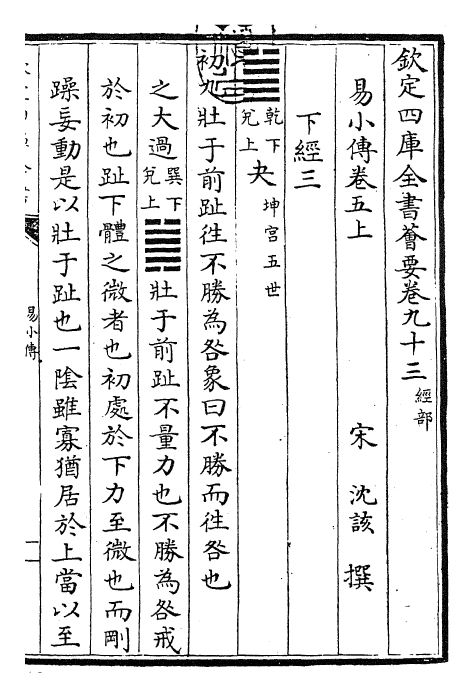 欽定四庫全書薈要卷九十三 經部
易小傳卷五上
宋 沈該 撰
下經三
乾下
兌上
夬 坤宮五世
初九壯于前趾往不勝為咎象曰不勝而往咎也
之大過 巽下
兌上
壯于前趾不量力也不勝為咎戒
於初也趾下體之微者也初處於下力至微也而剛
躁妄動是以壯于趾也一陰雖寡猶居於上當以至
易小傳
一